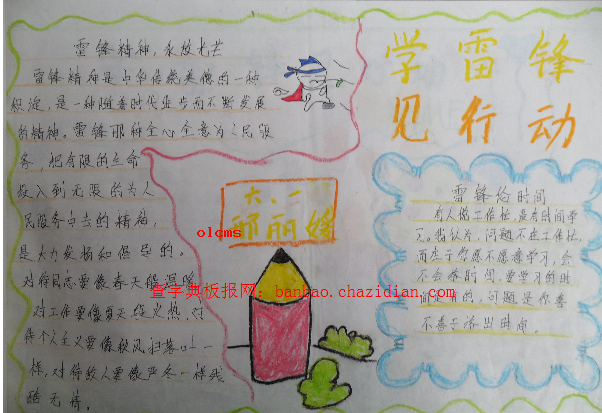 雷锋精神,永放光芒
雷锋精神是中华传统美德的一种
积淀,是一种随着时代进步而不断发展
的精神。雷锋那种全心全意为人民服
务,把有限的生命
投入到无限的为人
民服务中去的精神,
是大力发扬和倡导的。
对待同志要像春天般温暖
对工作要像夏天
待个人主义要像秋风扫落叶一
样,对待敌人要像严冬一样残
酷无情。
学雷锋
见行动
大、二
邱丽媛
olcms
查字典板报网:banbao.chazidian.com
雷锋的时间
有人说工作忙,没有时间学
习。我认为,问题不在工作忙,
而在于你愿不愿意学习,会
不会挤时间。要学习的时
间是有的,问题是你善
不善于挤出时间。